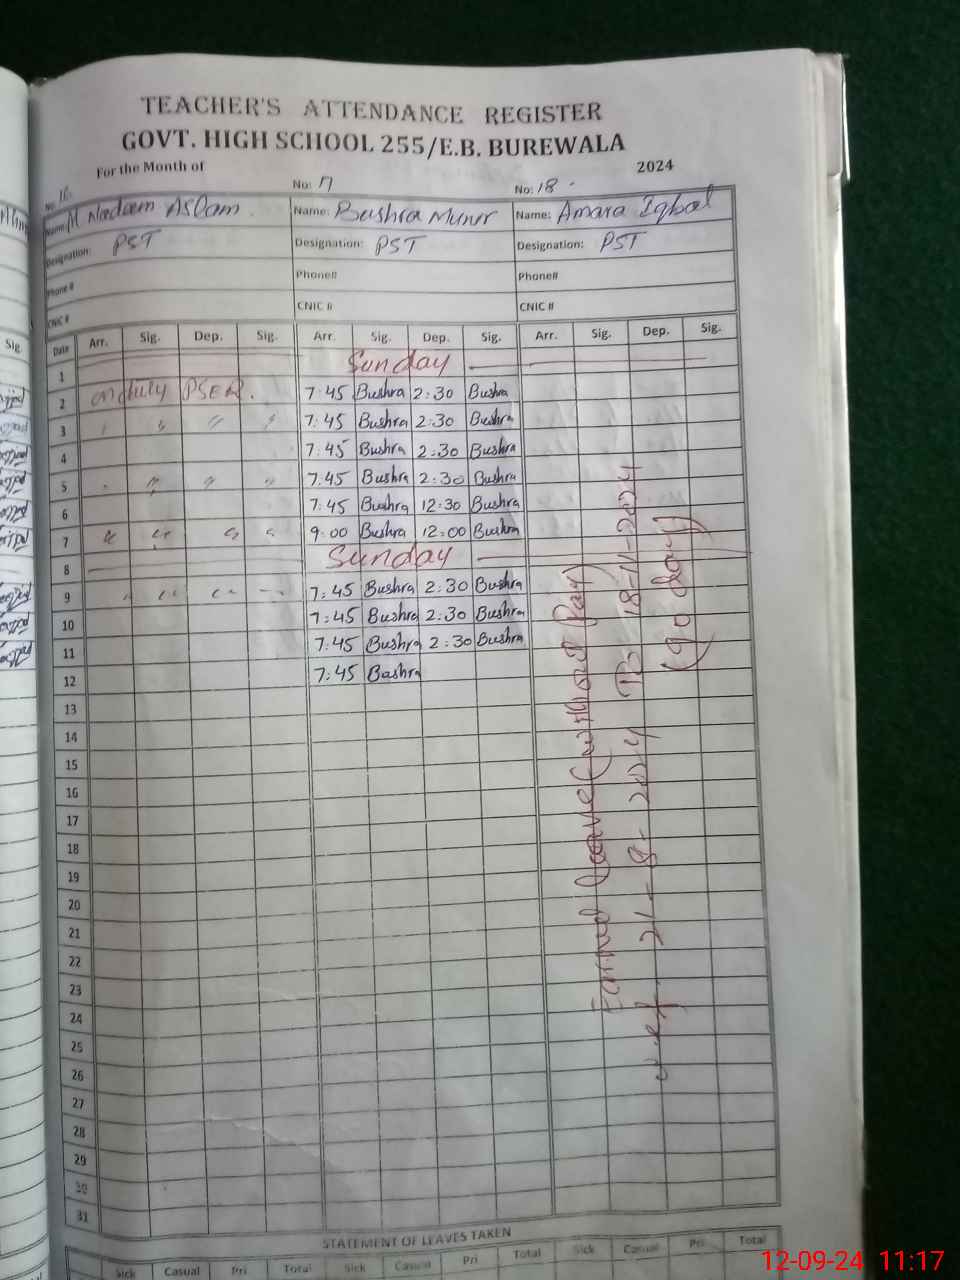 TEACHER'S ATTENDANCE REGISTER
GOVT. HIGH SCHOOL 255/E.B. BUREWALA
For the Month of 2024
No: 16. No: 17 No: 18.
Name: M Nadeem Aslam. Name: Bushra Munir Name: Amara Iqbal
Designation: PST Designation: PST Designation: PST
Phone # Phone# Phone#
CNIC # CNIC # CNIC #
Date Arr. Sig. Dep. Sig. Arr. Sig. Dep. Sig. Arr. Sig. Dep. Sig.
1 Sunday
2 on duty PSER. 7:45 Bushra 2:30 Bushra
3 7:45 Bushra 2:30 Bushra
4 7:45 Bushra 2:30 Bushra
5 " " " " 7:45 Bushra 2:30 Bushra
6 7:45 Bushra 12:30 Bushra
7 " " " " 9:00 Bushra 12:00 Bushra
8 Sunday
9 " " " " 7:45 Bushra 2:30 Bushra
10 7:45 Bushra 2:30 Bushra
11 7:45 Bushra 2:30 Bushra
12 7:45 Bushra
13
14
15
16
17
18
19
20
21
22
23
24
25
26
27
28
29
30
31
Earned leave (without Pay)
w.e.f 21-8-2024 To 18-11-2024
(90 days)
STATEMENT OF LEAVES TAKEN
Sick Casual Pri Total Sick Casual Pri Total Sick Casual Pri Total
12-09-24 11:17